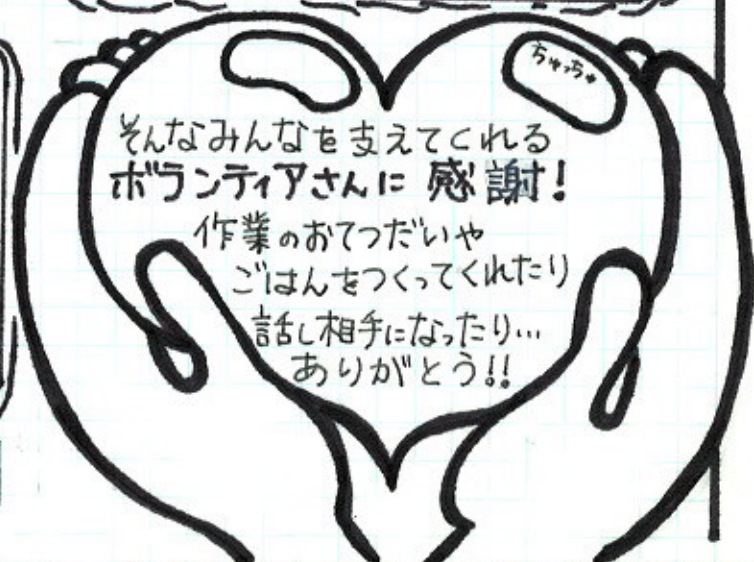 ちゅっちゅ
そんなみんなを支えてくれる
ボランティアさんに 感謝!
作業のおてつだいや
ごはんをつくってくれたり
話し相手になったり…
ありがとう!!